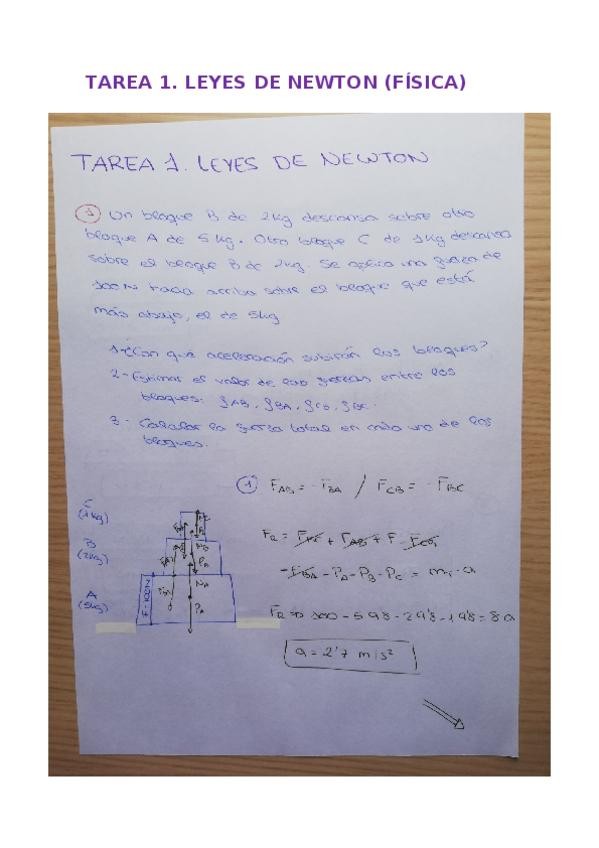 TAREA 1. LEYES DE NEWTON (FÍSICA)
TAREA 1. LEYES DE NEWTON
1 Un bloque B de 2kg descansa sobre otro
bloque A de 5kg. Otro bloque C de 1kg descansa
sobre el bloque B de 2kg. Se aplica una fuerza de
100N hacia arriba sobre el bloque que está
más abajo, el de 5kg
1-¿Con qué aceleración subirán los bloques?
2- Estimar el valor de las fuerzas entre los
bloques: FAB, FBA, FCB, FBC.
3- Calcular la fuerza total en cada uno de los
bloques.
1 FAB = -FBA / FCB = -FBC
C
(1kg)
B
(2kg)
A
(5kg)
F=100N
FR = FBC + FAB + F - FCB
- FBA - PA - PB - PC = mT · a
FR = 100 - 5·9'8 - 2·9'8 - 1·9'8 = 8a
a = 2'7 m/s²